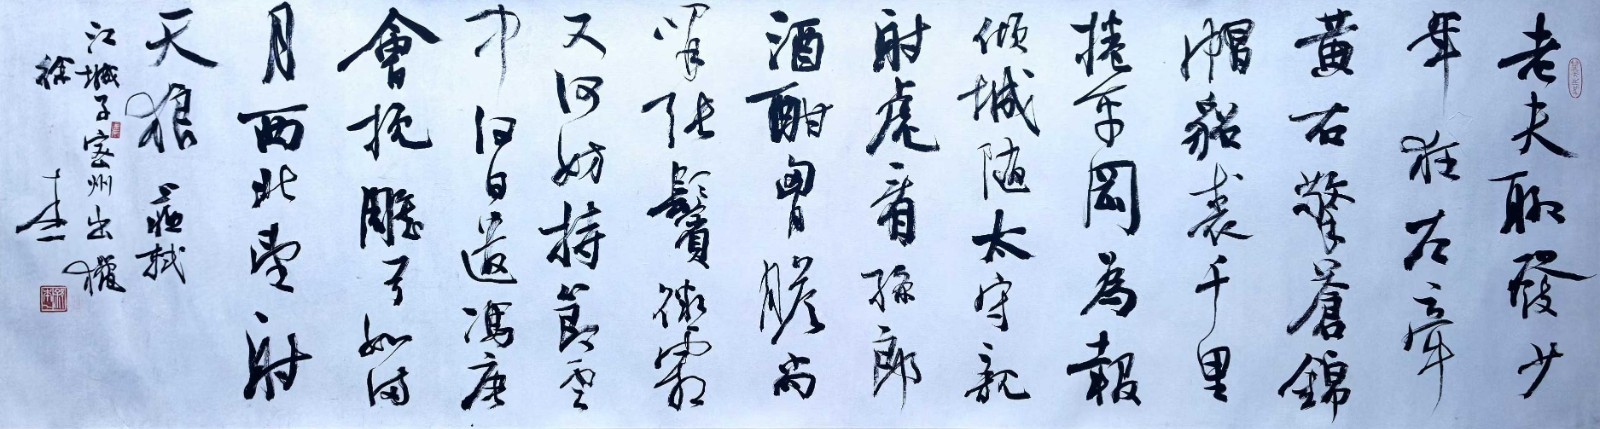 老夫聊發少
年狂左牽
黃右擎蒼錦
帽貂裘千里
捲平岡為報
傾城隨太守親
射虎看孫郎
酒酣胸膽尚
開張鬢微霜
又何妨持節雲
中何日遣馮唐
會挽雕弓如滿
月西北望射
天狼 蘇軾
江城子密州出獵
徐